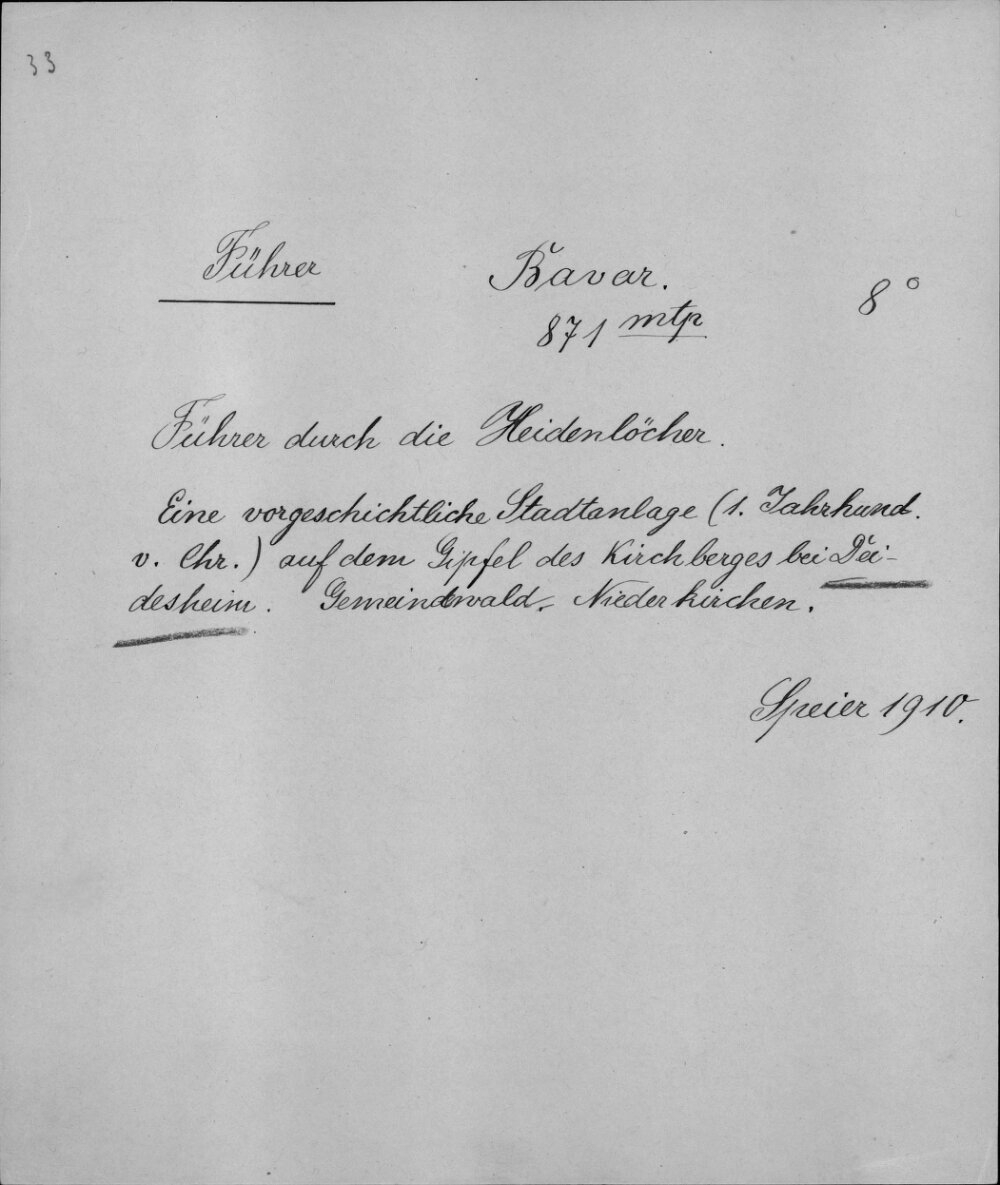 33
Führer
Bavar. 8°
871 mtp
Führer durch die Heidenlöcher.
Eine vorgeschichtliche Stadtanlage (1. Jahrhund.
v. Chr.) auf dem Gipfel des Kirchberges bei Dei-
desheim. Gemeindewald. Niederkirchen.
Speier 1910.